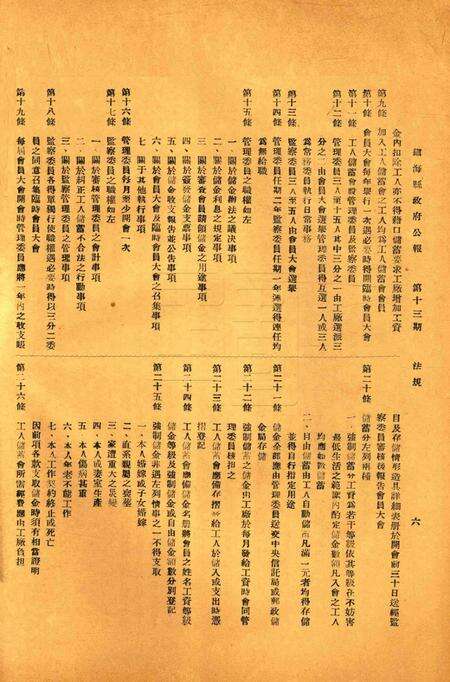 鎮海縣政府公報　第十三期　法規　六
金內扣除工人亦不得藉口儲蓄要求工廠增加工資
第九條　加入工人儲蓄會之工人均為工人儲蓄會會員
第十條　會員大會每年舉行一次遇必要時得開臨時會員大會
第十一條　工人儲蓄會設管理委員及監察委員
第十二條　管理委員三人至十五人其中三分之一由工廠選派三
分之二由會員大會選舉管理委員得互選一人或三人
為常務委員執行日常事務
第十三條　監察委員三人至五人由會員大會選舉
第十四條　管理委員任期二年監察委員任期一年連選得連任均
為無給職
第十五條　管理委員之職權如左
一、關於儲金辦法之議決事項
二、關於儲金利息之規定事項
三、關於審查會員請領儲金之用途事項
四、關於簽發儲金支票事項
五、關於儲金收支報告並公告事項
六、關於會員大會及臨時會員大會之召集事項
七、關于其他執行事項
第十六條　管理委員每月至少開會一次
第十七條　監察委員之職權如左
一、關於審核管理委員之會計事項
二、關於糾正工人儲蓄不合法之行動事項
三、關於監察管理委員之管理事項
第十八條　監察委員各得單獨行使職權遇必要時得以三分二委
員之同意召集臨時會員大會
第十九條　每屆會員大會開會時管理委員應將一年內之收支賬
目及存儲情形造具詳細表冊於開會前三十日送經監
察委員審核後報告會員大會
第二十條　儲蓄分左列兩種
一、強制儲蓄分工資為若干等級依其等級在不妨害
最低生活之範圍內酌定儲金數額凡入會之工人
均應如數儲蓄
二、自由儲蓄由工人自動儲蓄凡滿一元者均得存儲
並得自行指定用途
第二十一條　儲金全部應由管理委員送交中央信託局或郵政儲
金局存儲
第二十二條　強制儲蓄之儲金由工廠於每月發給工資時會同管
理委員核扣之
第二十三條　工人儲蓄會應備存摺發給工人於儲入或支出時憑
摺登記
第二十四條　工人儲蓄會應備儲金名冊將會員之姓名工資等級
儲金等級及強制儲金或自由儲金額數分別登記
第二十五條　強制儲金非遇左列情事之一不得支取
一、本人婚嫁或子女婚嫁
二、直系親屬之喪葬
三、家遭重大之災變
四、本人或妻室生產
五、本人傷病甚重
六、本人年老不能工作
七、本人工作契約終止或死亡
因前項各款支取儲金時須有相當證明
第二十六條　工人儲蓄會所需經費應由工廠負担